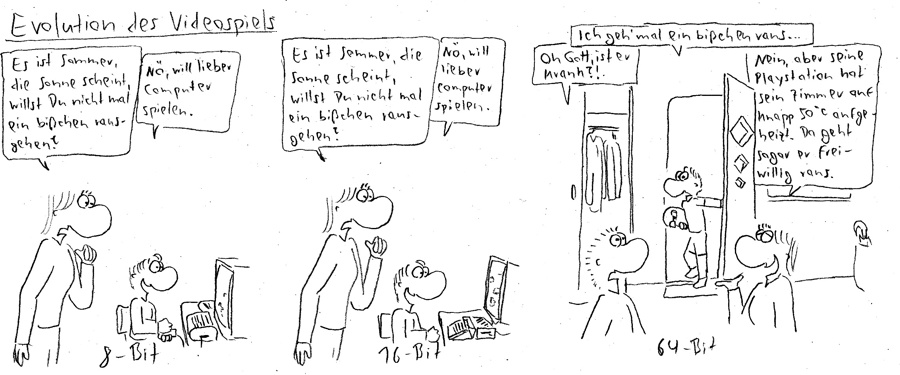 Evolution des Videospiels
Es ist Sommer,
die Sonne scheint,
willst Du nicht mal
ein bißchen raus-
gehen?
Nö, will lieber
Computer
spielen.
8-Bit
Es ist Sommer, die
Sonne scheint,
willst Du nicht mal
ein bißchen raus-
gehen?
Nö, will
lieber
Computer
spielen.
16-Bit
Ich geh' mal ein bißchen raus...
Oh Gott, ist er
krank?!.
Nein, aber seine
Playstation hat
sein Zimmer auf
knapp 50°C aufge-
heizt. Da geht
sogar er frei-
willig raus.
64-Bit